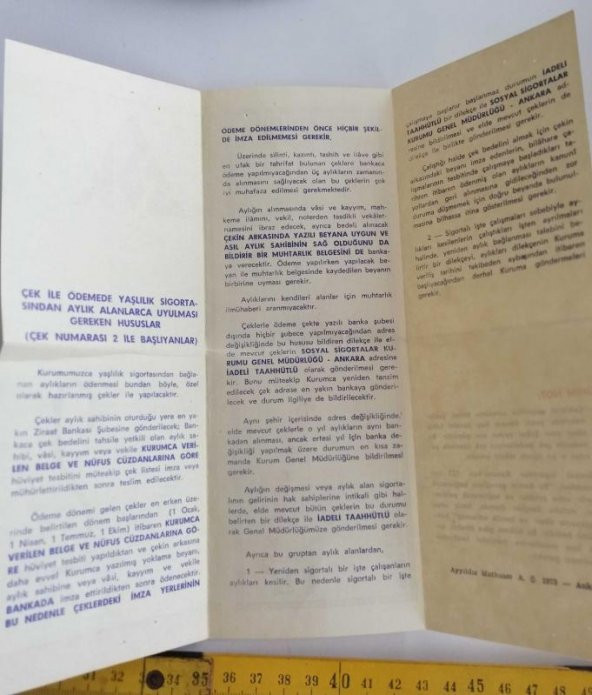 ÇEK İLE ÖDEMEDE YAŞLILIK SİGORTA-
SINDAN AYLIK ALANLARCA UYULMASI
GEREKEN HUSUSLAR
(ÇEK NUMARASI 2 İLE BAŞLIYANLAR)
Kurumumuzca yaşlılık sigortasından bağla-
nan aylıkların ödenmesi bundan böyle, özel
olarak hazırlanmış çekler ile yapılacaktır.
Çekler aylık sahibinin oturduğu yere en ya-
kın Ziraat Bankası Şubesine gönderilecek; Ban-
kaca çek bedelini tahsile yetkili olan aylık sa-
hibi, vâsi, kayyım veya vekile KURUMCA VERİ-
LEN BELGE VE NÜFUS CÜZDANLARINA GÖRE
hüviyet tesbitini müteakip çek listesi imza veya
mühürlettirildikten sonra teslim edilecektir.
Ödeme dönemi gelen çekler en erken üze-
rinde belirtilen dönem başlarından (1 Ocak,
1 Nisan, 1 Temmuz, 1 Ekim) itibaren KURUMCA
VERİLEN BELGE VE NÜFUS CÜZDANLARINA GÖ-
RE hüviyet tesbiti yapıldıktan ve çekin arkasına
daha evvel Kurumca yazılmış yoklama beyanı,
aylık sahibine veya vâsi, kayyım ve vekile
BANKADA imza ettirildikten sonra ödenecektir.
BU NEDENLE ÇEKLERDEKİ İMZA YERLERİNİN
ÖDEME DÖNEMLERİNDEN ÖNCE HİÇBİR ŞEKİL-
DE İMZA EDİLMEMESİ GEREKİR.
Üzerinde silinti, kazıntı, tashih ve ilâve gibi
en ufak bir tahrifat bulunan çeklere bankaca
ödeme yapılmıyacağından üç aylıkların zamanın-
da alınmasını sağlıyacak olan bu çeklerin çok
iyi muhafaza edilmesi gerekmektedir.
Aylığın alınmasında vâsi ve kayyım, mah-
keme ilâmını, vekil, noterden tasdikli vekâlet-
namesini ibraz edecek, ayrıca bedeli alınacak
ÇEKİN ARKASINDA YAZILI BEYANA UYGUN VE
ASIL AYLIK SAHİBİNİN SAĞ OLDUĞUNU DA
BİLDİRİR BİR MUHTARLIK BELGESİNİ DE banka-
ya verecektir. Ödeme yapılırken yapılacak be-
yan ile muhtarlık belgesinde kaydedilen beyanın
birbirine uyması gerekir.
Aylıklarını kendileri alanlar için muhtarlık
ilmühaberi aranmıyacaktır.
Çeklerle ödeme çekte yazılı banka şubesi
dışında hiçbir şubece yapılmıyacağından adres
değişikliğinde bu hususu bildiren dilekçe ile el-
de mevcut çeklerin SOSYAL SİGORTALAR KU-
RUMU GENEL MÜDÜRLÜĞÜ - ANKARA adresine
İADELİ TAAHHÜTLÜ olarak gönderilmesi gere-
kir. Bunu müteakip Kurumca yeniden tanzim
edilecek çek adrese en yakın bankaya gönderi-
lecek ve durum ilgiliye de bildirilecektir.
Aynı şehir içerisinde adres değişikliğinde,
elde mevcut çeklerle o yıl aylıkların aynı ban-
kadan alınması, ancak ertesi yıl için banka de-
ğişikliği yapılmak üzere durumun en kısa za-
manda Kurum Genel Müdürlüğüne bildirilmesi
gerekir.
Aylığın değişmesi veya aylık alan sigorta-
lının gelirinin hak sahiplerine intikali gibi hal-
lerde, elde mevcut bütün çeklerin bu durumu
belirten bir dilekçe ile İADELİ TAAHHÜTLÜ ola-
rak Genel Müdürlüğümüze gönderilmesi gerekir.
Ayrıca bu gruptan aylık alanlardan,
1 — Yeniden sigortalı bir işte çalışanların
aylıkları kesilir. Bu nedenle sigortalı bir işte
çalışmaya başlanır başlanmaz durumun İADELİ
TAAHHÜTLÜ bir dilekçe ile SOSYAL SİGORTALAR
KURUMU GENEL MÜDÜRLÜĞÜ - ANKARA ad-
resine bildirilmesi ve elde mevcut çeklerin de
dilekçe ile birlikte gönderilmesi gerekir.
Çalıştığı halde çek bedelini almak için çekin
arkasındaki beyanı imza edenlerin, bilâhare ça-
lışmalarının tesbitinde çalışmaya başladıkları ta-
rihten itibaren ödenmiş olan aylıkların kanunî
yollardan geri alınmasına gidileceğinden zor
duruma düşmemek için doğru beyanda bulunul-
masına bilhassa itina gösterilmesi gerekir.
2 — Sigortalı işte çalışmaları sebebiyle ay-
lıkları kesilenlerin çalıştıkları işten ayrılmaları
halinde, yeniden aylık bağlanması talebini be-
lirtir bir dilekçeyi, aylıkları dilekçenin Kuruma
veriliş tarihini takibeden aybaşından itibaren
başlıyacağından derhal Kuruma göndermeleri
gerekir.
Ayyıldız Matbaası A. Ş. 1973 — Ank
31 32 33 34 35 36 37 38 39 40 41 42 43 44 45 46 47 48